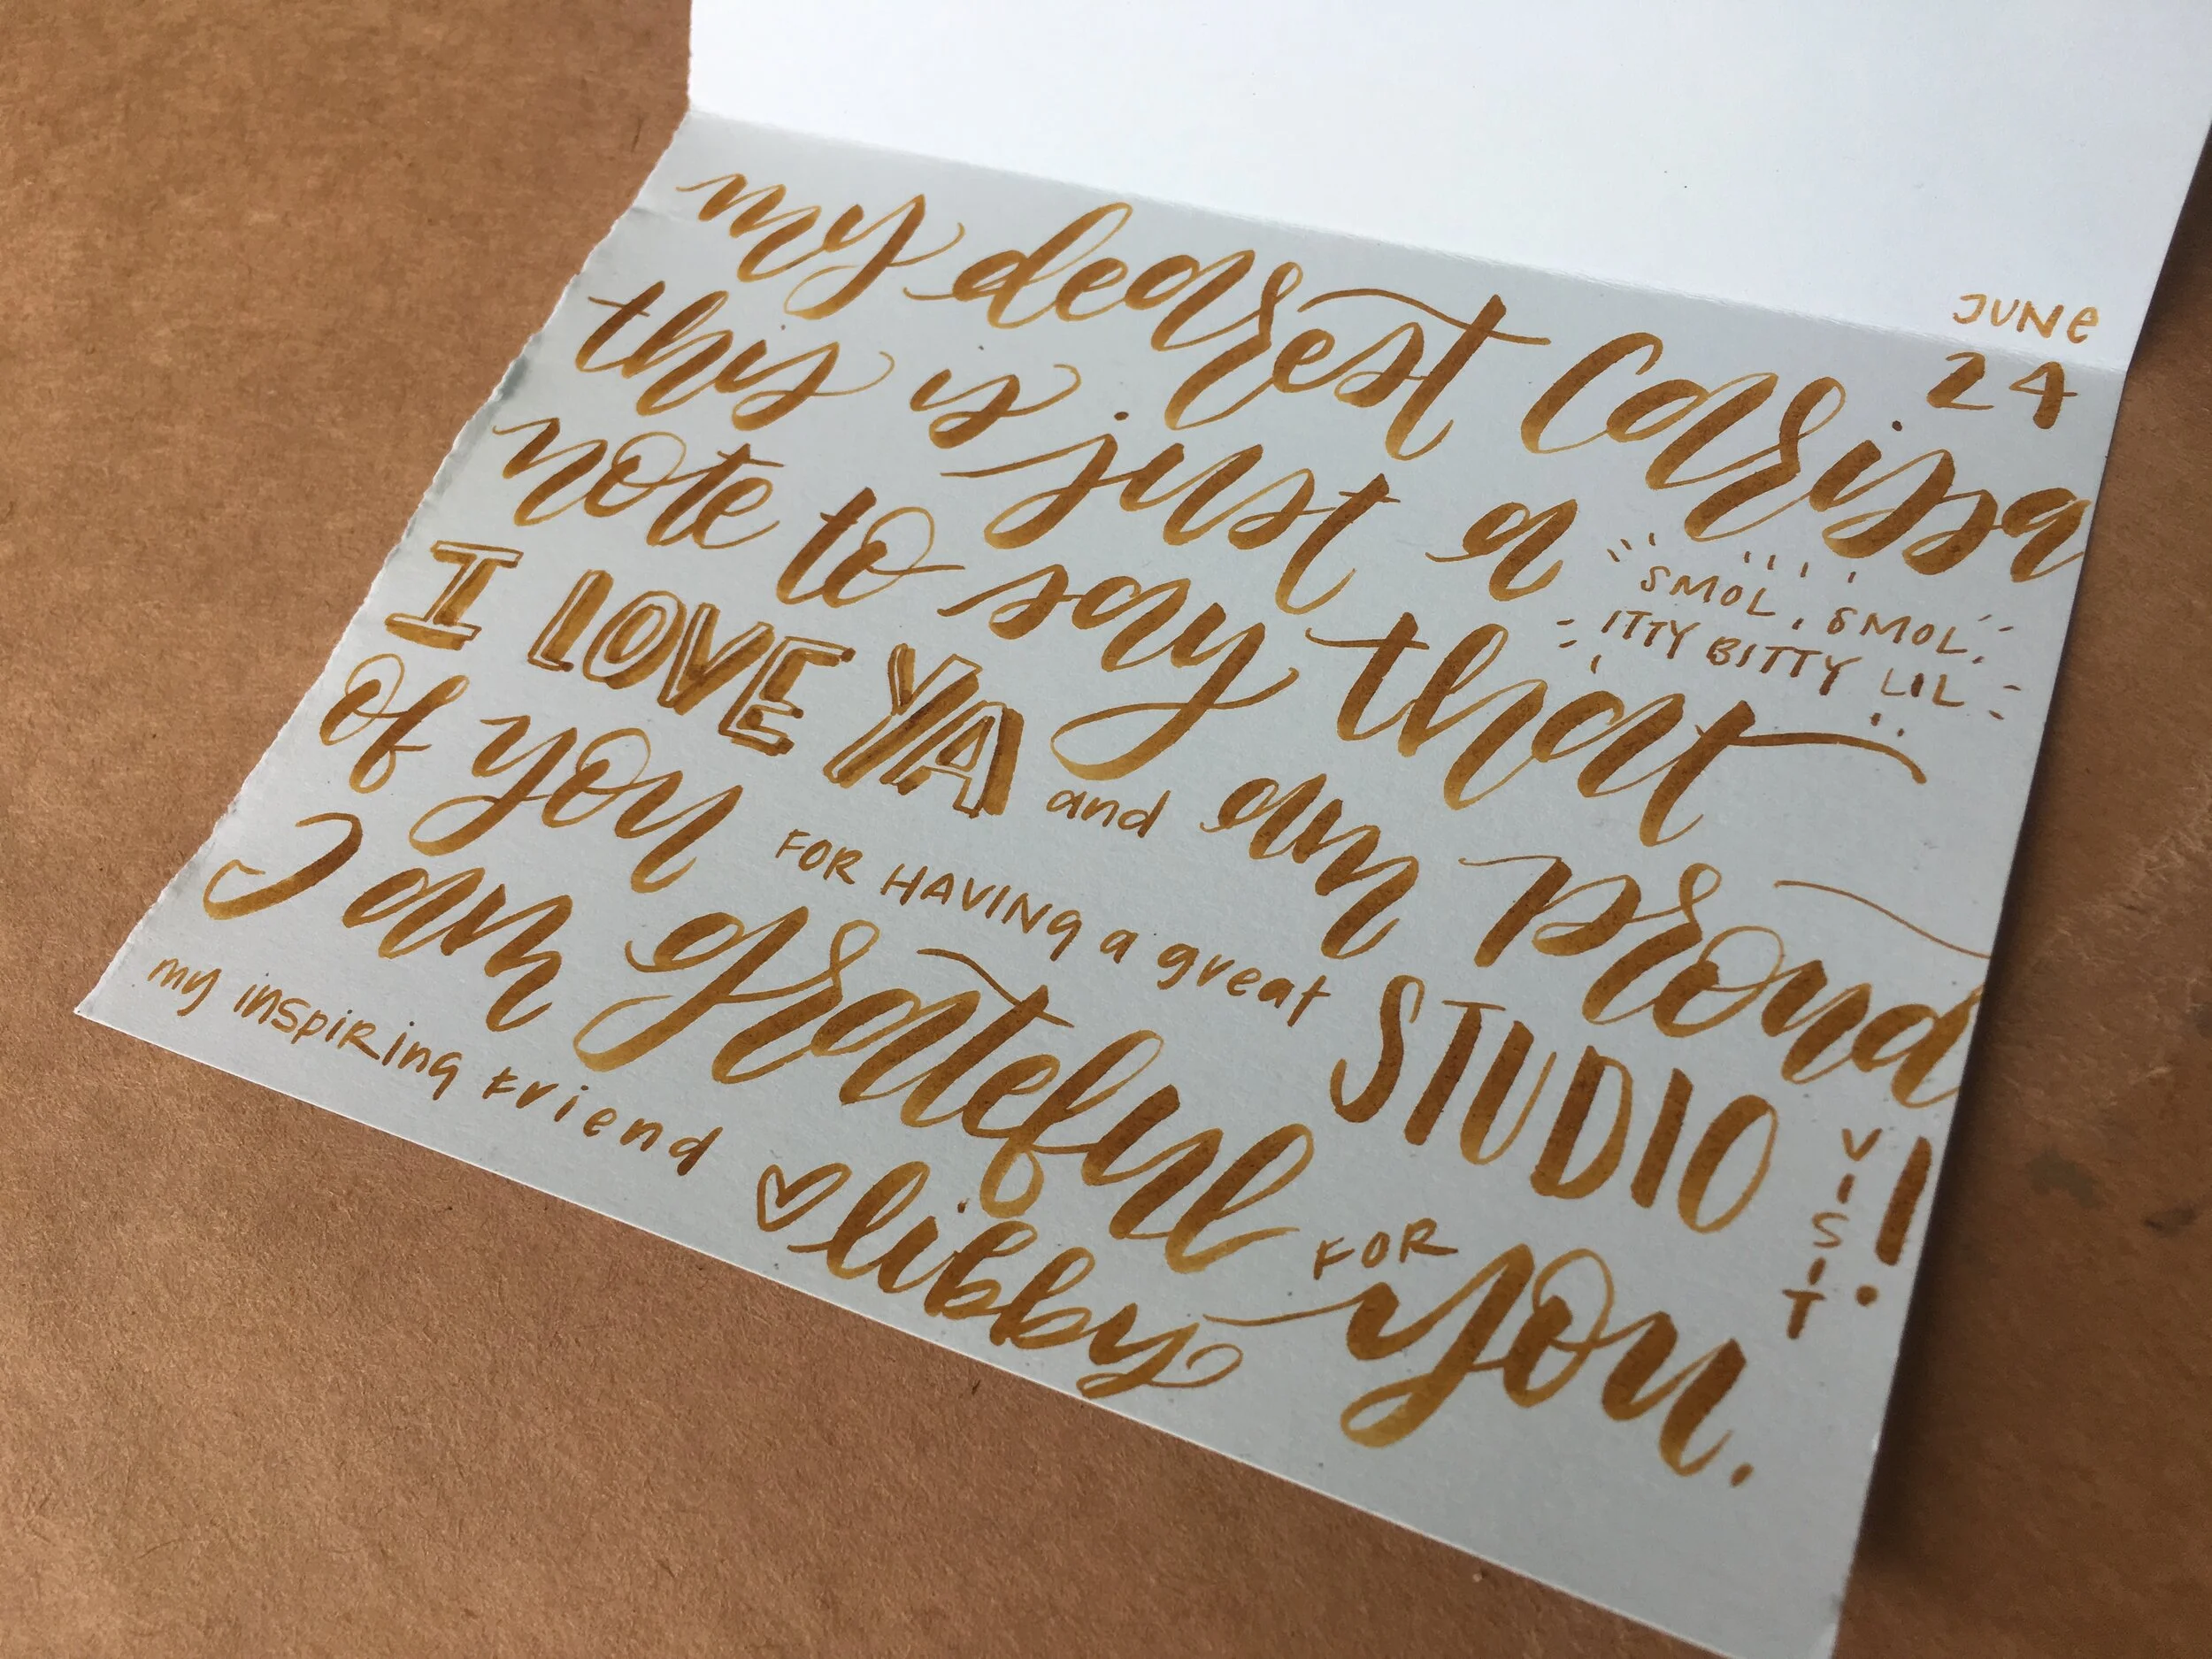 JUNE
24
my dearest Carissa
this is just a SMOL, SMOL,
ITTY BITTY LIL
note to say that
I LOVE YA and am proud
of you FOR HAVING a great STUDIO VISIT!
I am grateful FOR you.
my inspiring friend
♡ libby